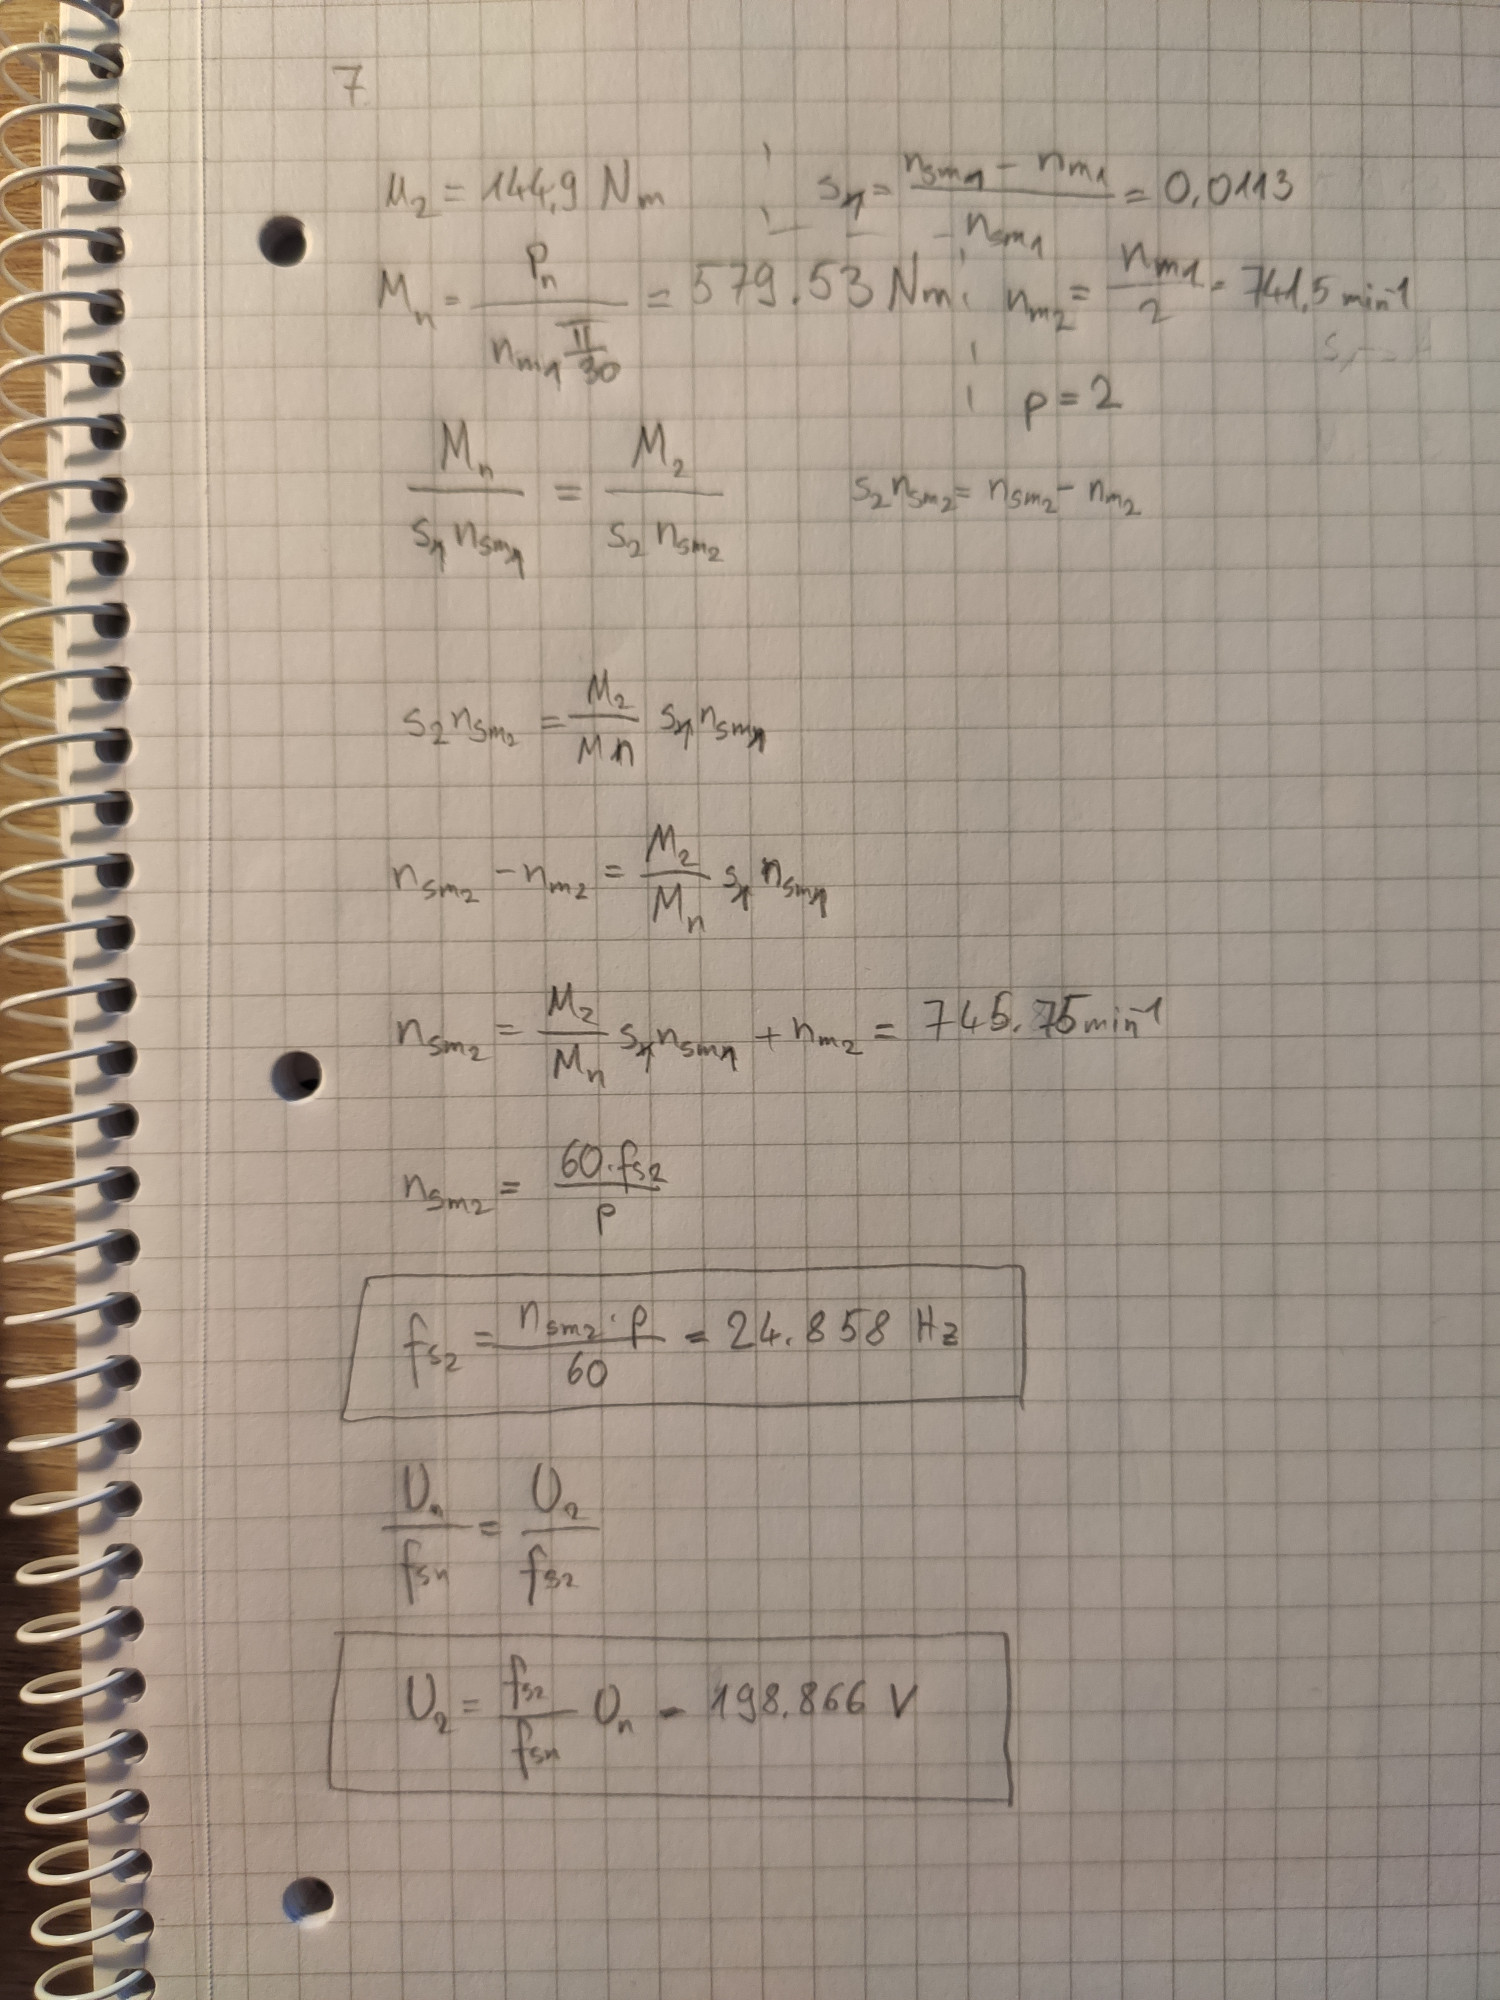 7
M₂ = 144,9 Nm
s₁ = (n_sm1 − n_m1) / n_sm1 = 0,0113
M_n = P_n / (n_m1 π/30) = 579.53 Nm
n_m2 = n_m1 / 2 = 741,5 min⁻¹
p = 2
M_n / (s₁ n_sm1) = M₂ / (s₂ n_sm2)
s₂ n_sm2 = n_sm2 − n_m2
s₂ n_sm2 = M₂ / Mn s₁ n_sm1
n_sm2 − n_m2 = M₂ / M_n s₁ n_sm1
n_sm2 = M₂ / M_n s₁ n_sm1 + n_m2 = 745.75 min⁻¹
n_sm2 = 60·f_s2 / p
f_s2 = n_sm2 · p / 60 = 24.858 Hz
U_n / f_sn = U₂ / f_s2
U₂ = f_s2 / f_sn U_n = 198.866 V